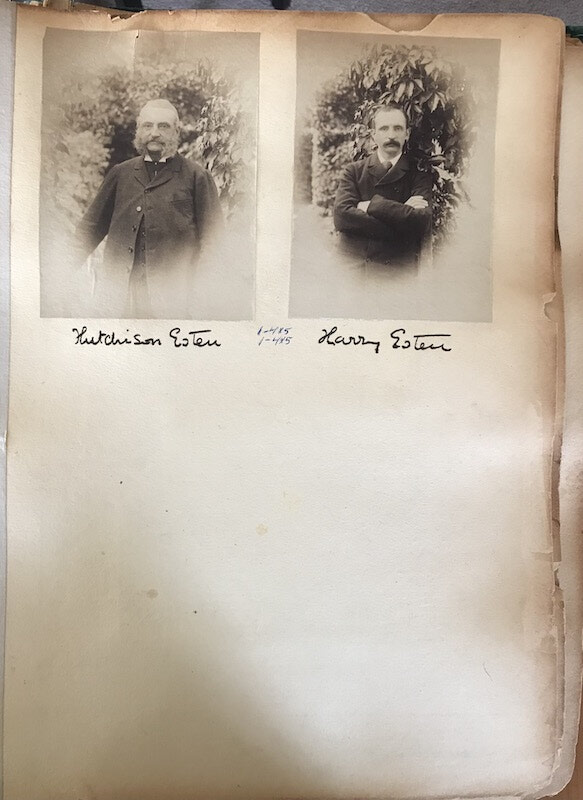 Hutchison Esten
1-415
1-415
Harry Esten